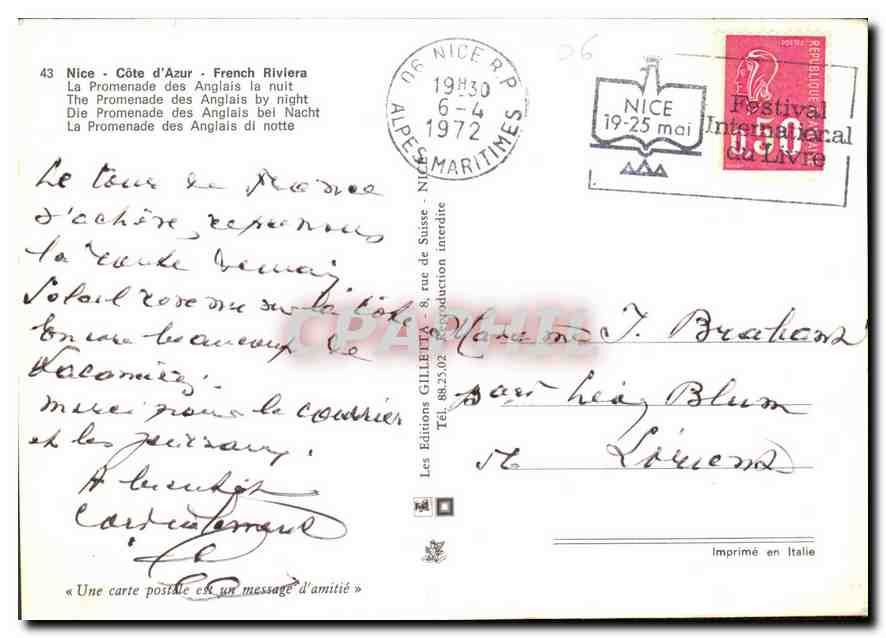 43 Nice - Côte d'Azur - French Riviera
La Promenade des Anglais la nuit
The Promenade des Anglais by night
Die Promenade des Anglais bei Nacht
La Promenade des Anglais di notte
06 NICE R.P.
19H30
6-4
1972
ALPES MARITIMES
06
NICE
19-25 mai
Festival
International
du Livre
REPUBLIQUE FRANCAISE
0.50
Le tour de France
s'achève, reprenons
la route demain
Soleil sur la Côte
Encore beaucoup de
merci pour le courrier
et les
A bientôt
Cordialement
« Une carte postale est un message d'amitié »
Les Editions GILLETTA - 8, rue de Suisse - NICE
Tél. 88.25.02 - Reproduction interdite
CPAPHIL
Madame J. Brabans
Léon Blum
Lorient
Imprimé en Italie